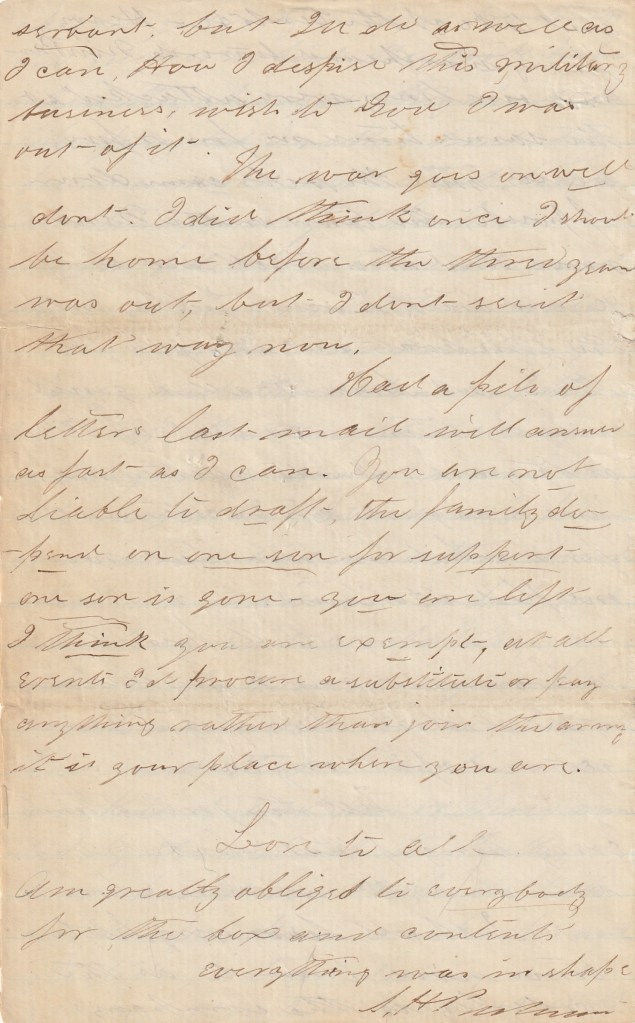 servant. but I'll do as well as
I can, How I despise this military
business, wish to God I was
out of it.
The war goes on well
dont. I did think once I should
be home before the third year
was out, but I dont see it
that way now.
Had a pile of
letters last mail will answer
as fast as I can. You are not
liable to draft, the family de-
-pend on one son for support
one son is gone - you are left
I think you are exempt, at all
events I'd procure a substitute or pay
anything rather than join the army
it is your place where you are.
Love to all
Am greatly obliged to everybody
for the box and contents
everything was in shape
S. H.